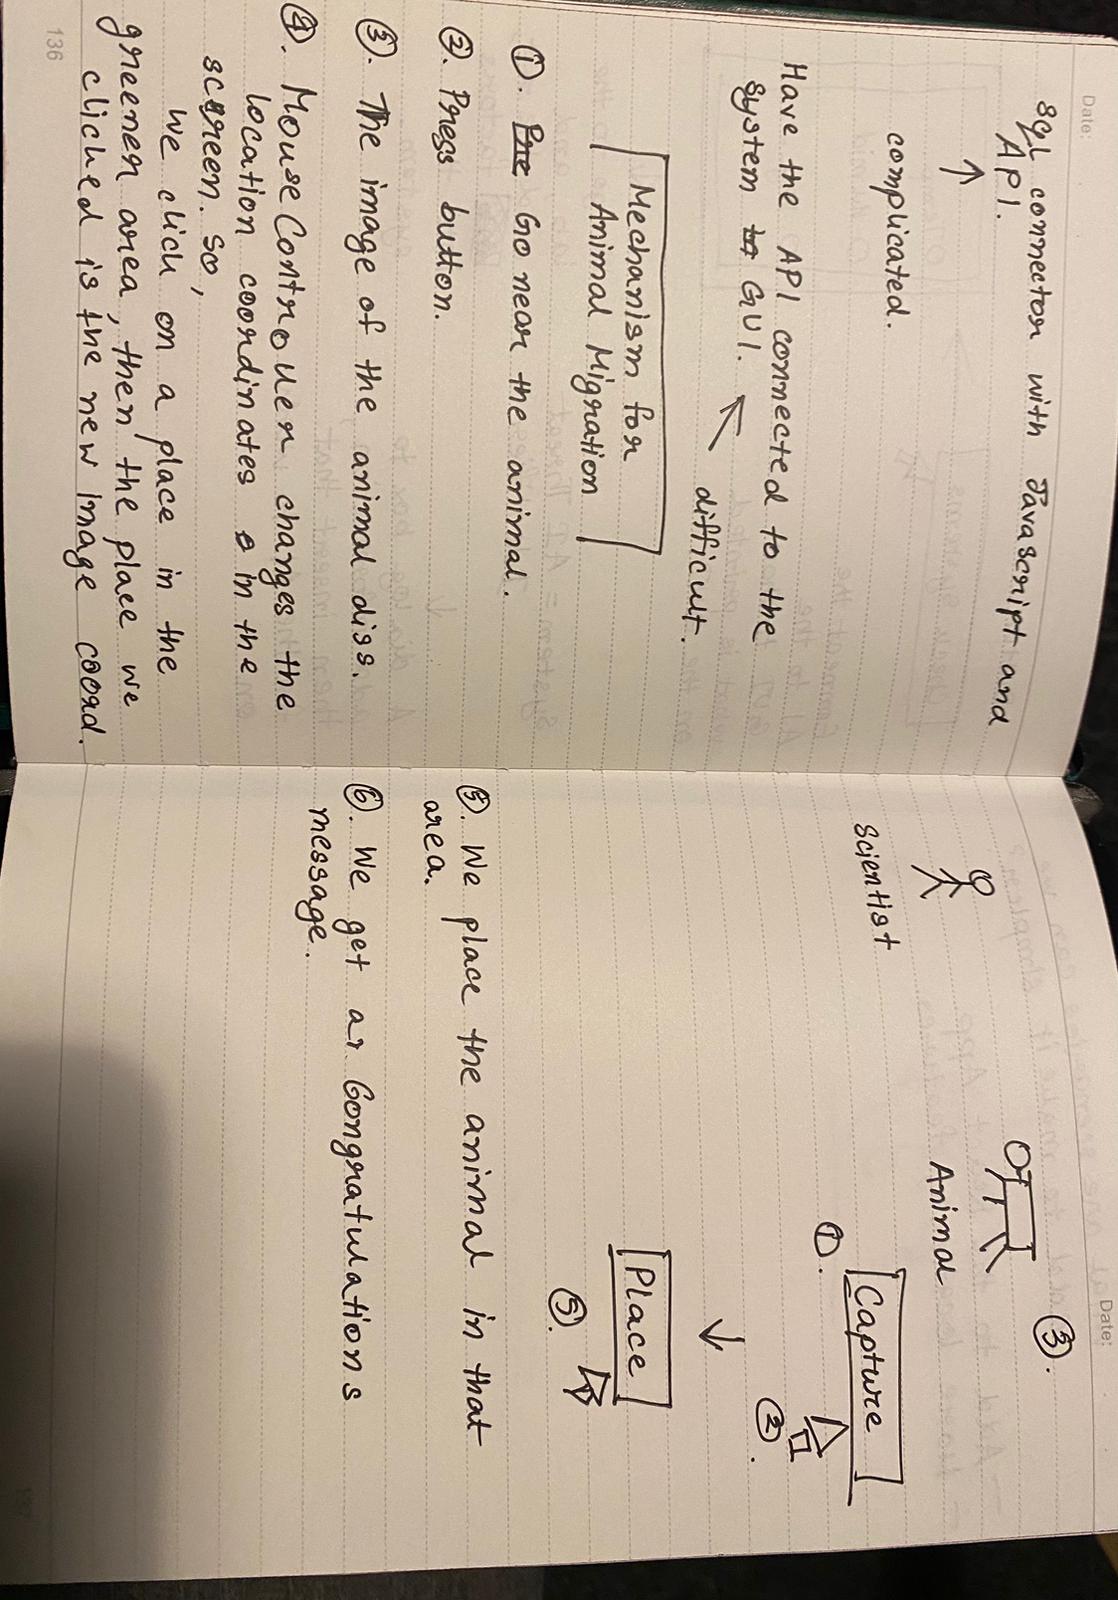 Date:
Sql connector with Javascript and
API.
↑
complicated.
Have the API connected to the
system GUI.
↑
difficult.
Mechanism for
Animal Migration
①. Go near the animal.
②. Press button.
③. The image of the animal diss.
④. MouseController changes the
location coordinates in the
screen. So,
We click on a place in the
greener area, then the place we
clicked is the new image coord.
136
Date:
③.
Animal
Scientist
Capture
①.
②.
↓
Place
⑤.
⑤. We place the animal in that
area.
⑥. We get a Congratulations
message.